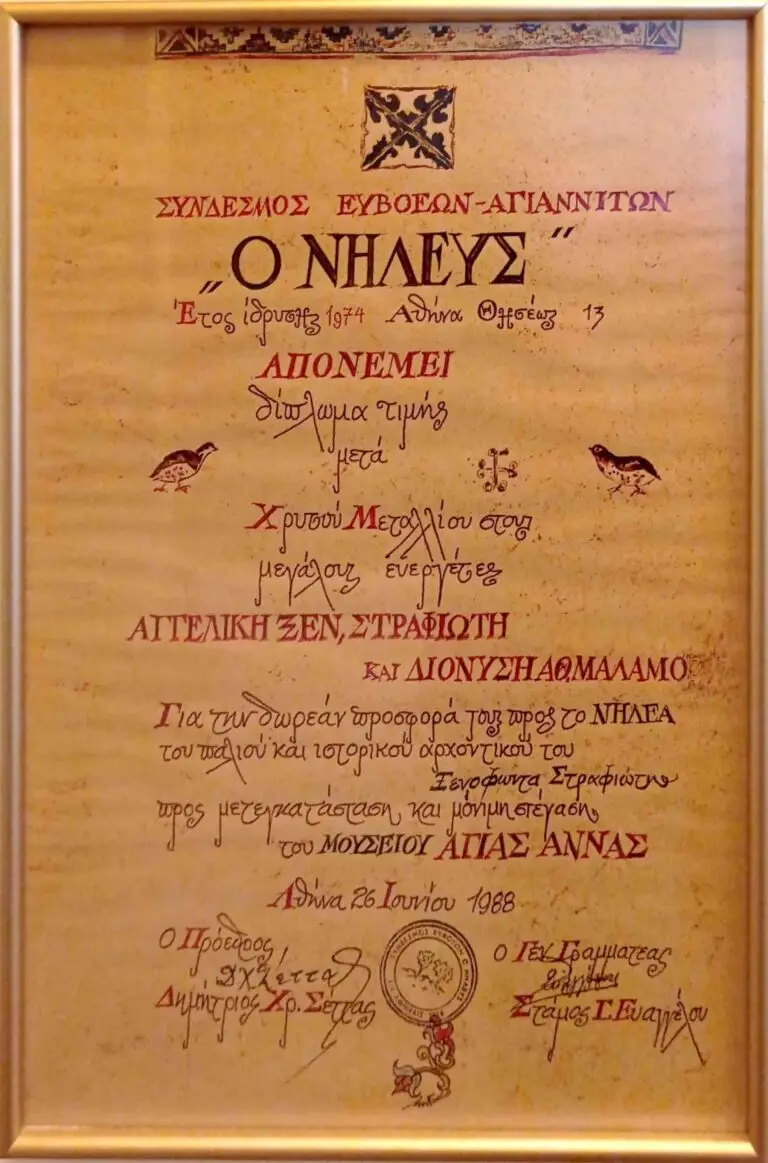 ΣΥΝΔΕΣΜΟΣ ΕΥΒΟΕΩΝ-ΑΓΙΑΝΝΙΤΩΝ
„Ο ΝΗΛΕΥΣ"
Έτος ίδρυσης 1974 Αθήνα Θησέως 13
ΑΠΟΝΕΜΕΙ
δίπλωμα τιμής
μετά
Χρυσού Μεταλλίου στους
μεγάλους ευεργέτες
ΑΓΓΕΛΙΚΗ ΞΕΝ. ΣΤΡΑΦΙΩΤΗ
ΚΑΙ ΔΙΟΝΥΣΗ ΑΘ. ΜΑΛΑΜΟ
Για την δωρεάν προσφορά τους προς το ΝΗΛΕΑ
του παλιού και ιστορικού αρχοντικού του
Ξενοφώντα Στραφιώτη
προς μετεγκατάσταση και μόνιμη στέγαση
του ΜΟΥΣΕΙΟΥ ΑΓΙΑΣ ΑΝΝΑΣ
Αθήνα 26 Ιουνίου 1988
Ο Πρόεδρος
Δημήτριος Χρ. Σέττας
Ο Γεν. Γραμματεας
Στάμος Γ. Ευαγγέλου